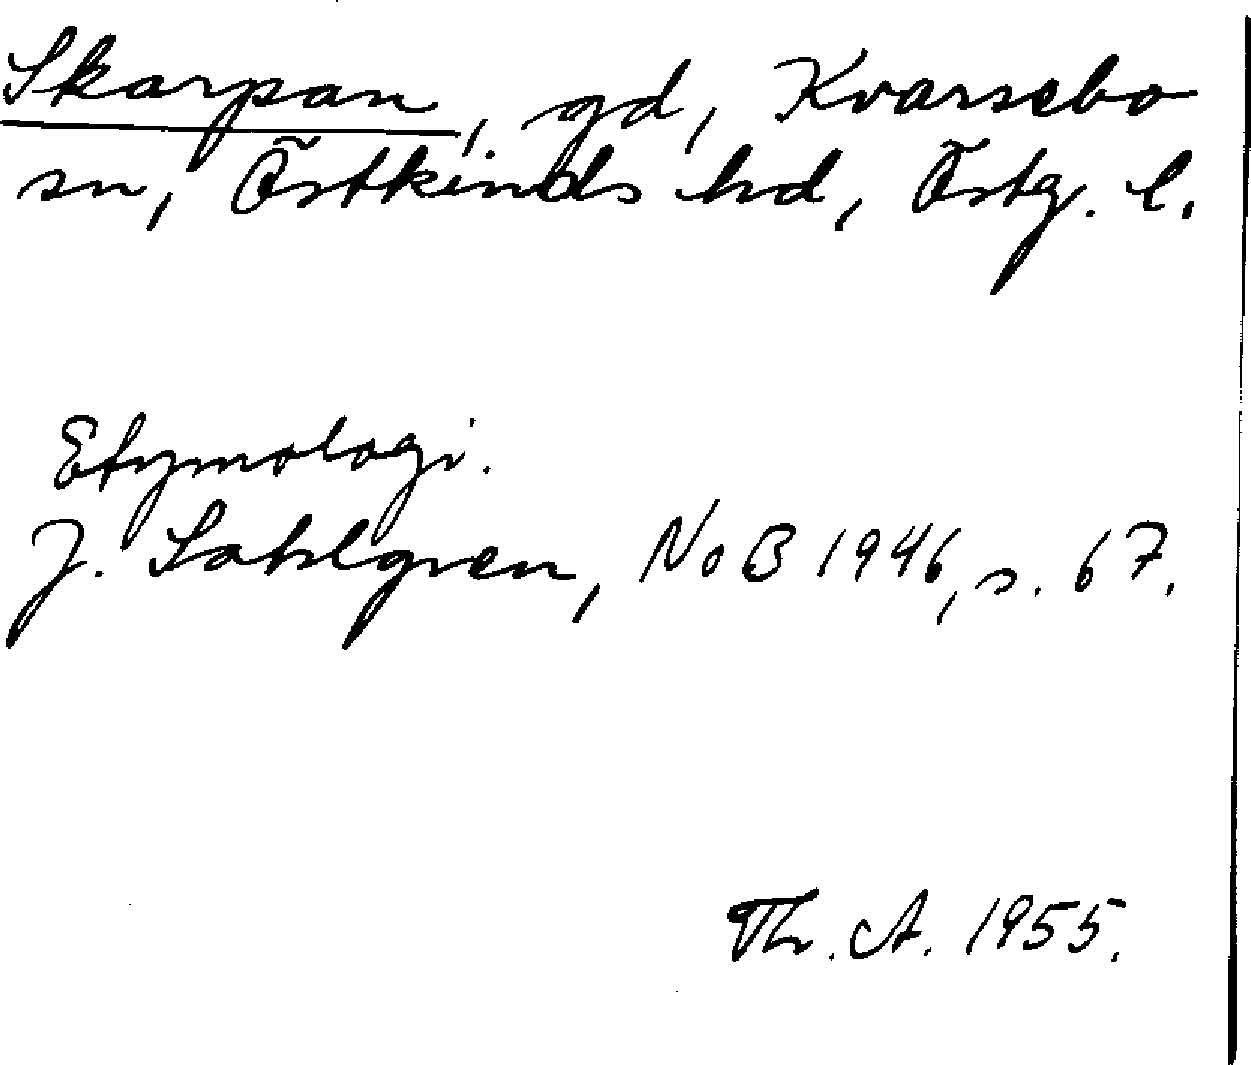 Skarpan, gd, Kvarsebo
sn, Östkinds hd, Östg. l.
Etymologi.
J. Sahlgren, NoB 1946, s. 67.
Th. A. 1955.